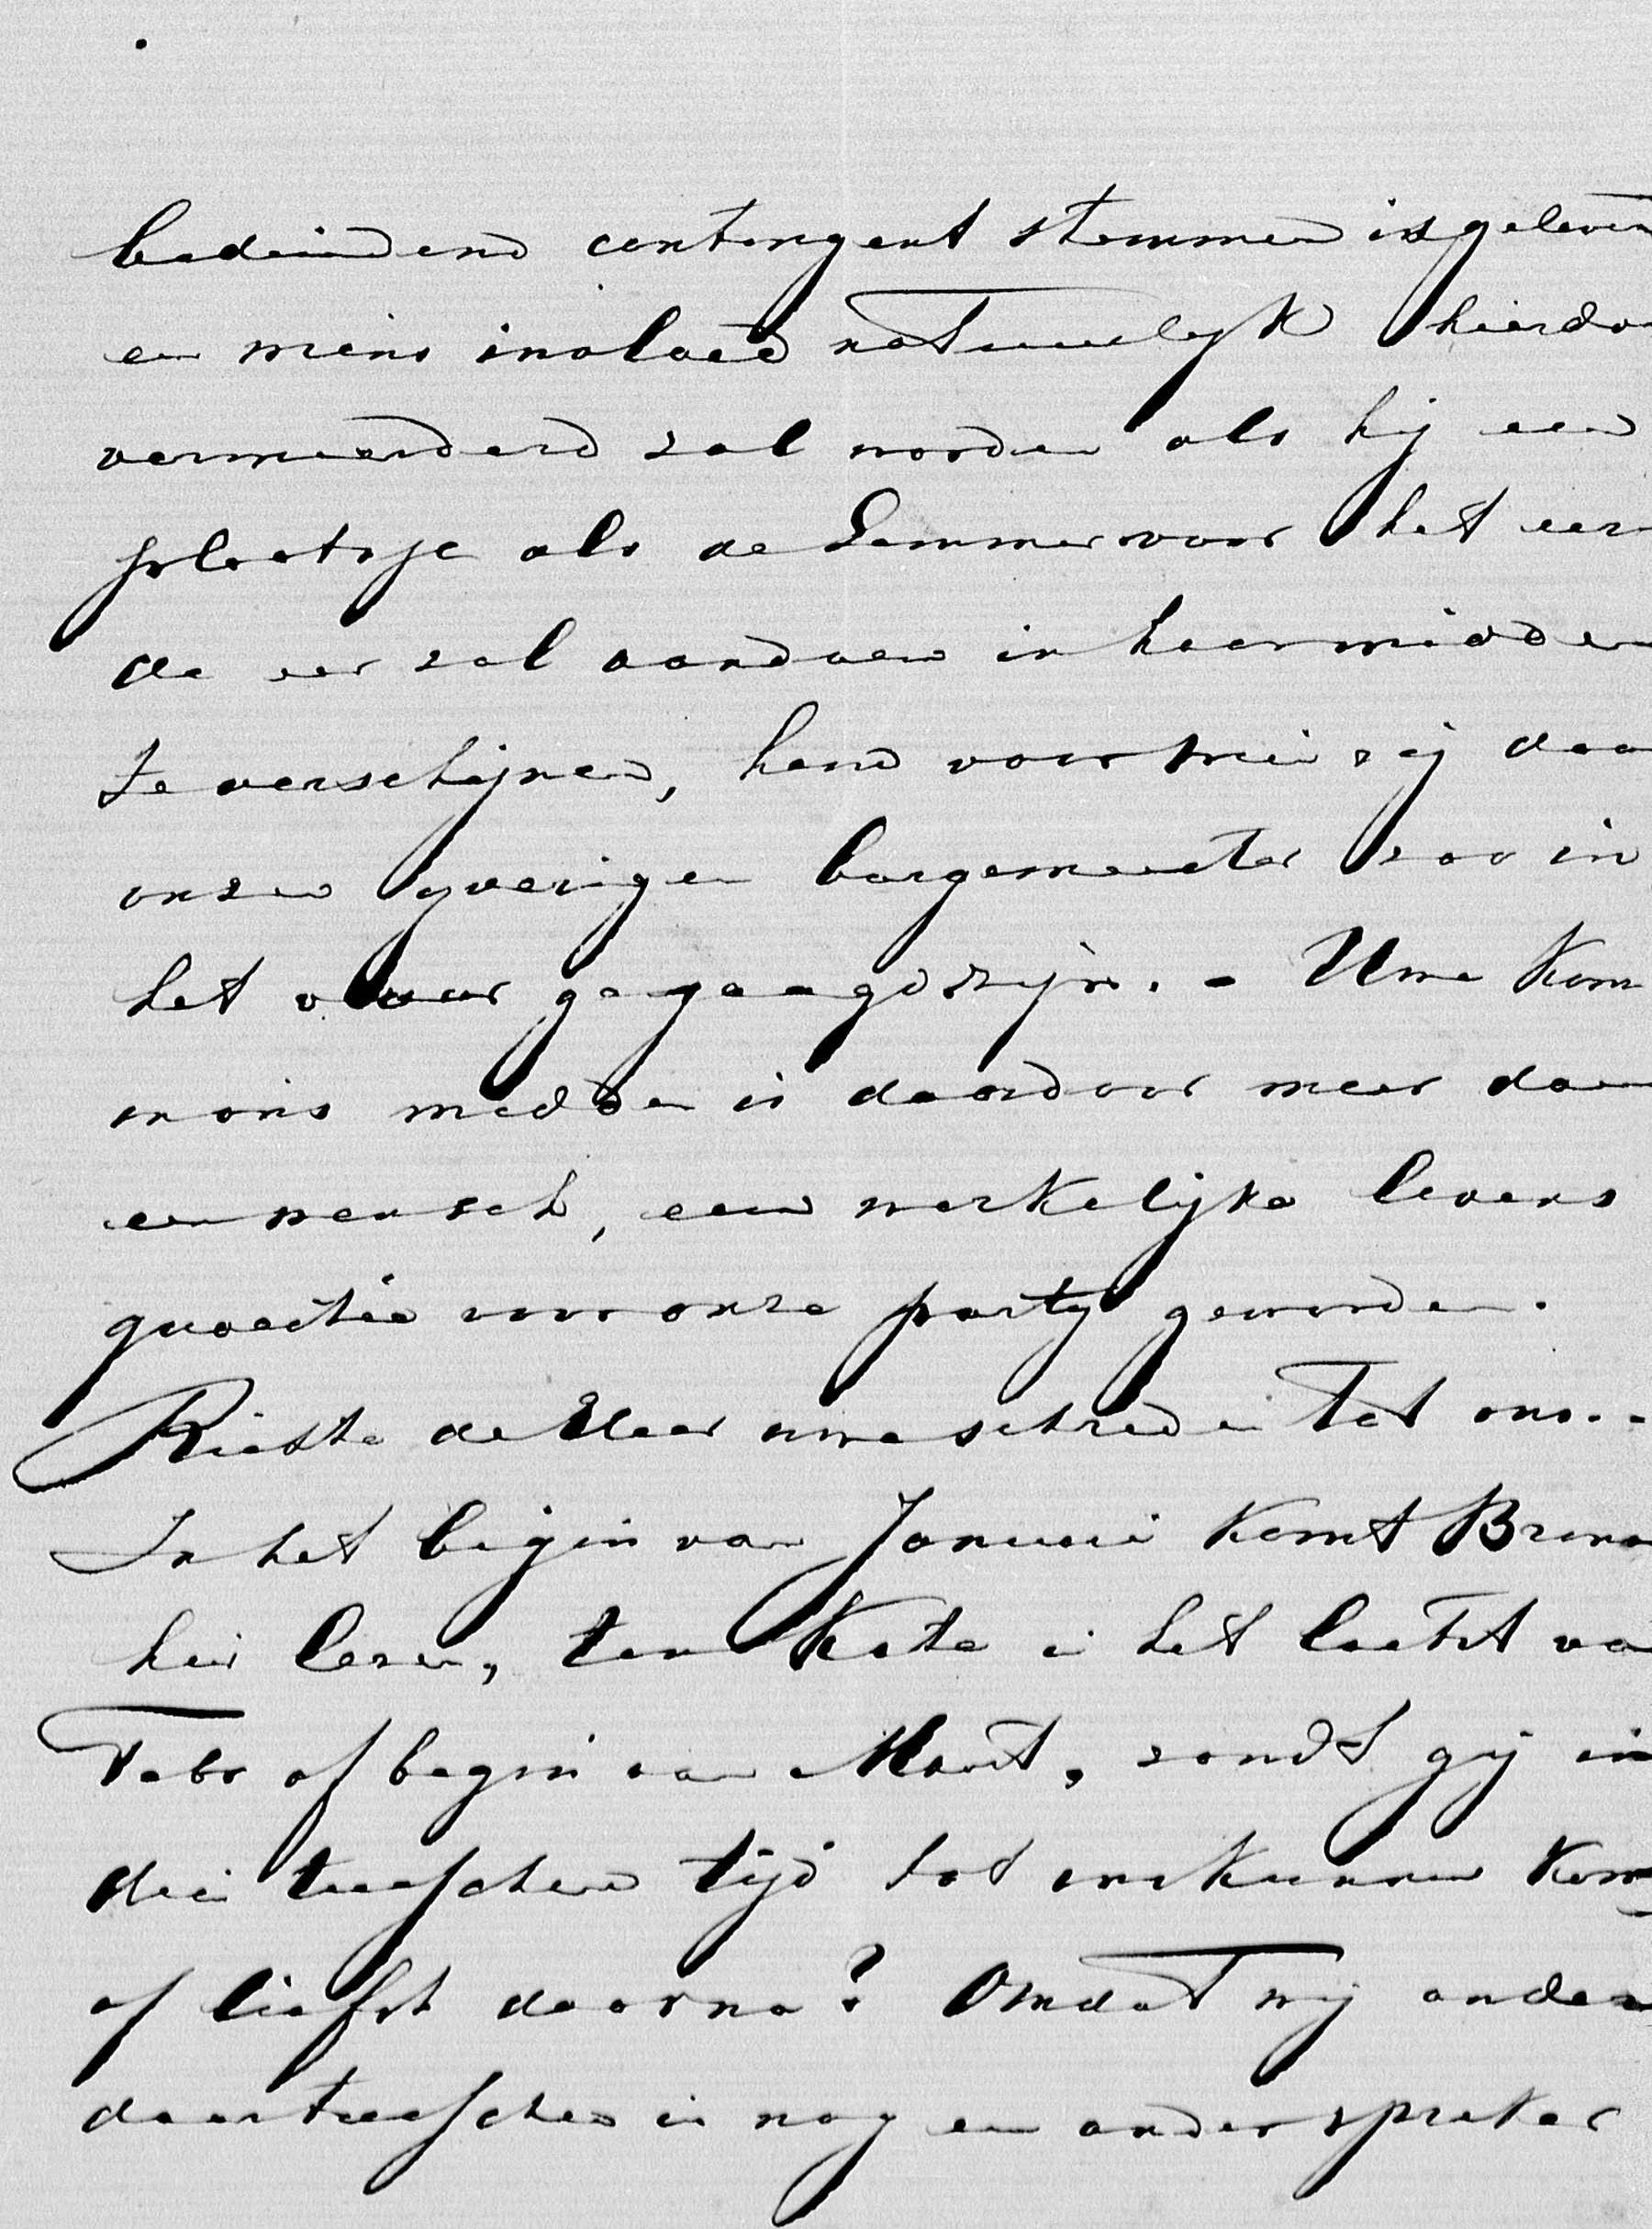 beduidend contingent stemmen is gelever
en wiens invloed natuurlyk hierdo
vermeerderd zal worden als hij een
plaatsje als de Lemmer voor het eer
de eer zal aandoen in haar midden
te verschijnen, hand voor wie zij daa
onzen yverigen burgemeester zoo in
het vuur gejaagd zijn. - Uwe kom
in ons midden is daardoor meer dan
een wensch, een werkelijke levens
quaestie voor onze party geworden.
Richte de Heer uwe schreden tot ons. -
In het begin van Januari komt Brons
hier lezen, ten Kate in het laatst va
Febr of begin van Maart, zoudt gij in
dien tusschen tijd tot ons kunnen kom
of liefst daarna? Omdat wij ander
daar tusschen in nog een ander spreker